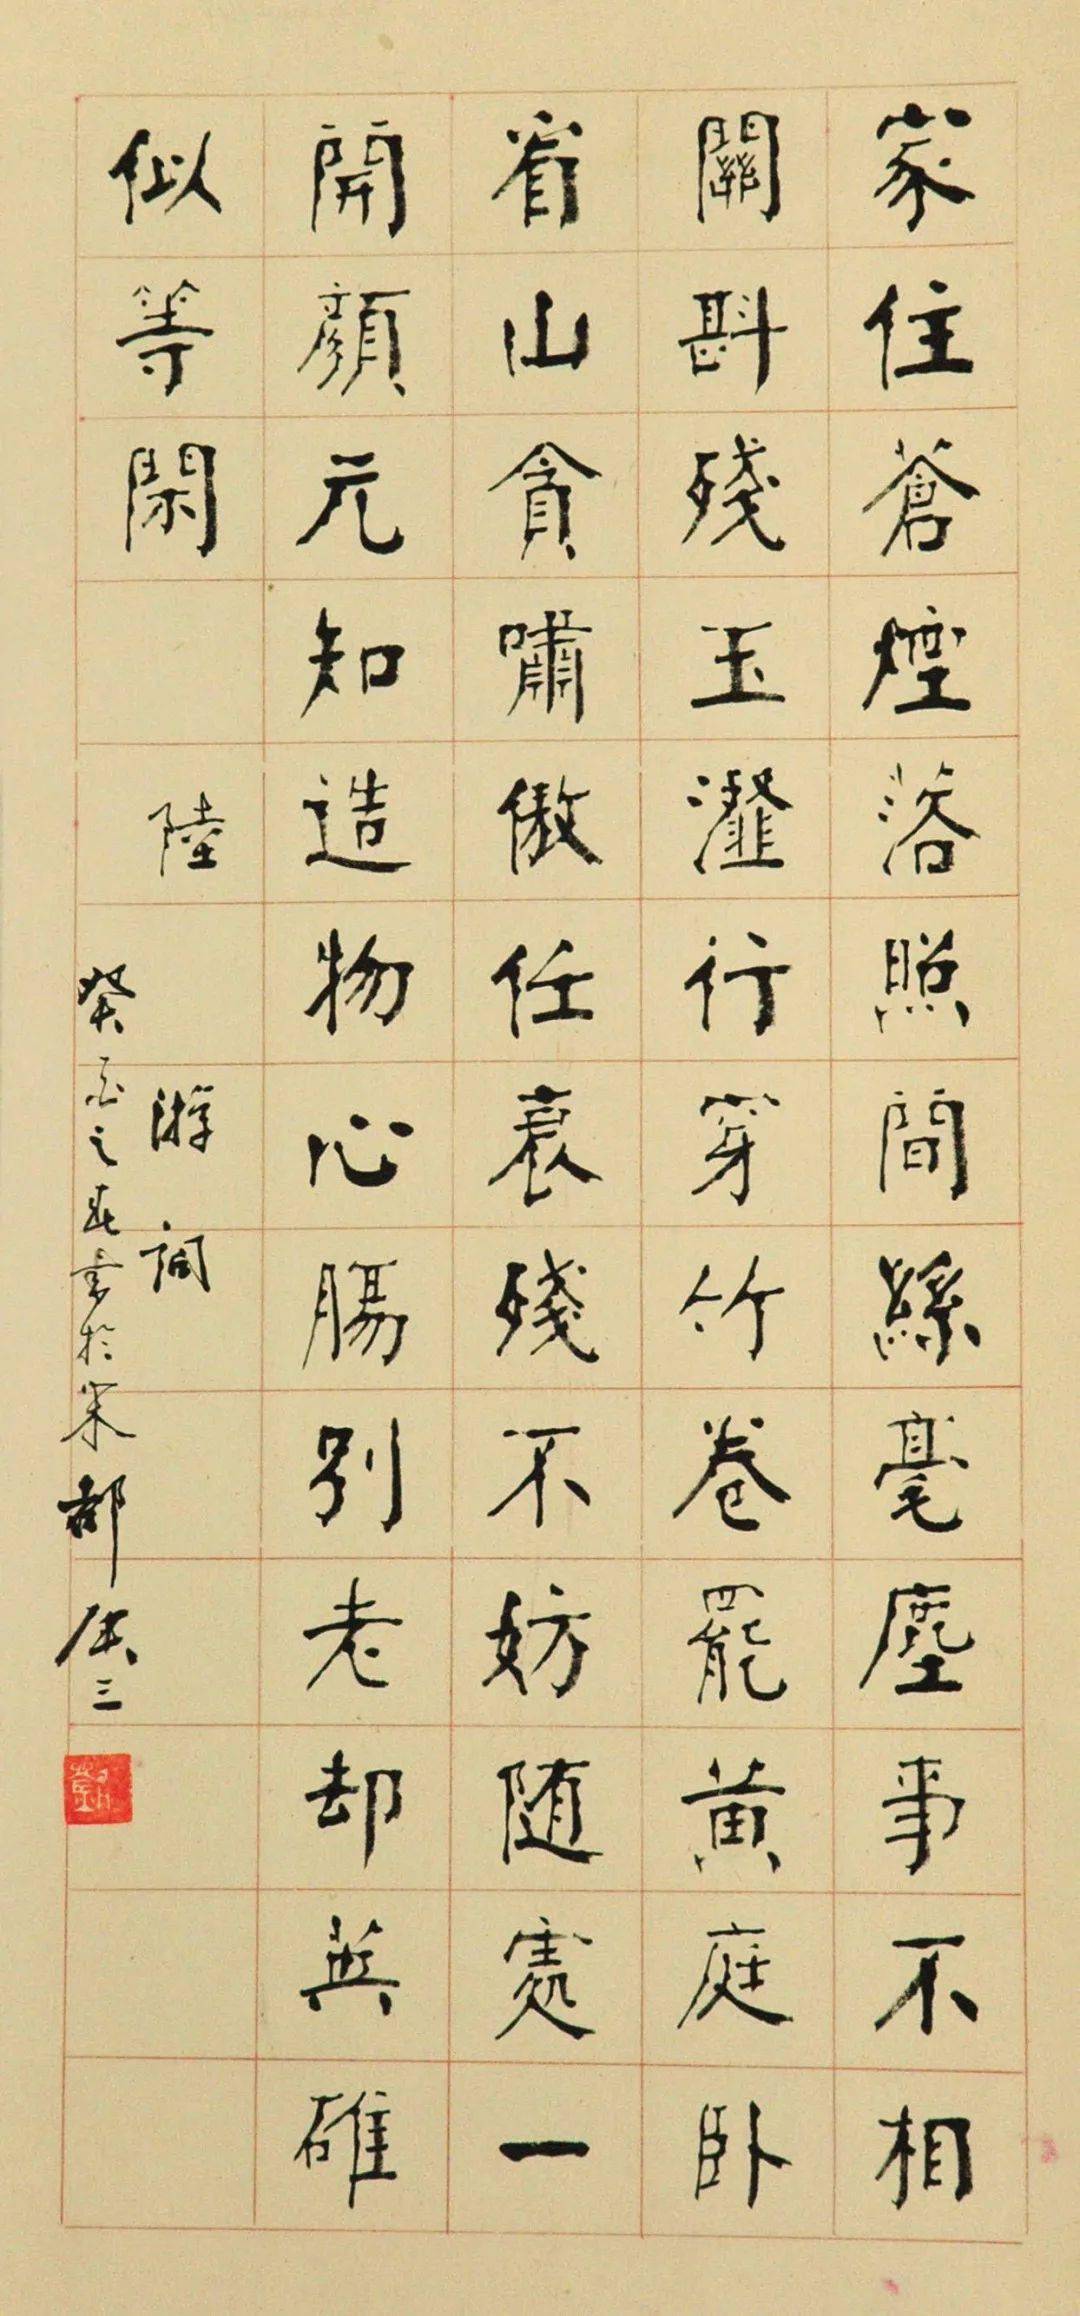 家住蒼煙落照間絲毫塵事不相
關斟殘玉瀣行穿竹卷罷黃庭卧
看山貪嘯傲任衰殘不妨随處一
開顏元知造物心腸別老却英雄
似等閑
陸游詞
癸酉之春書於宋都